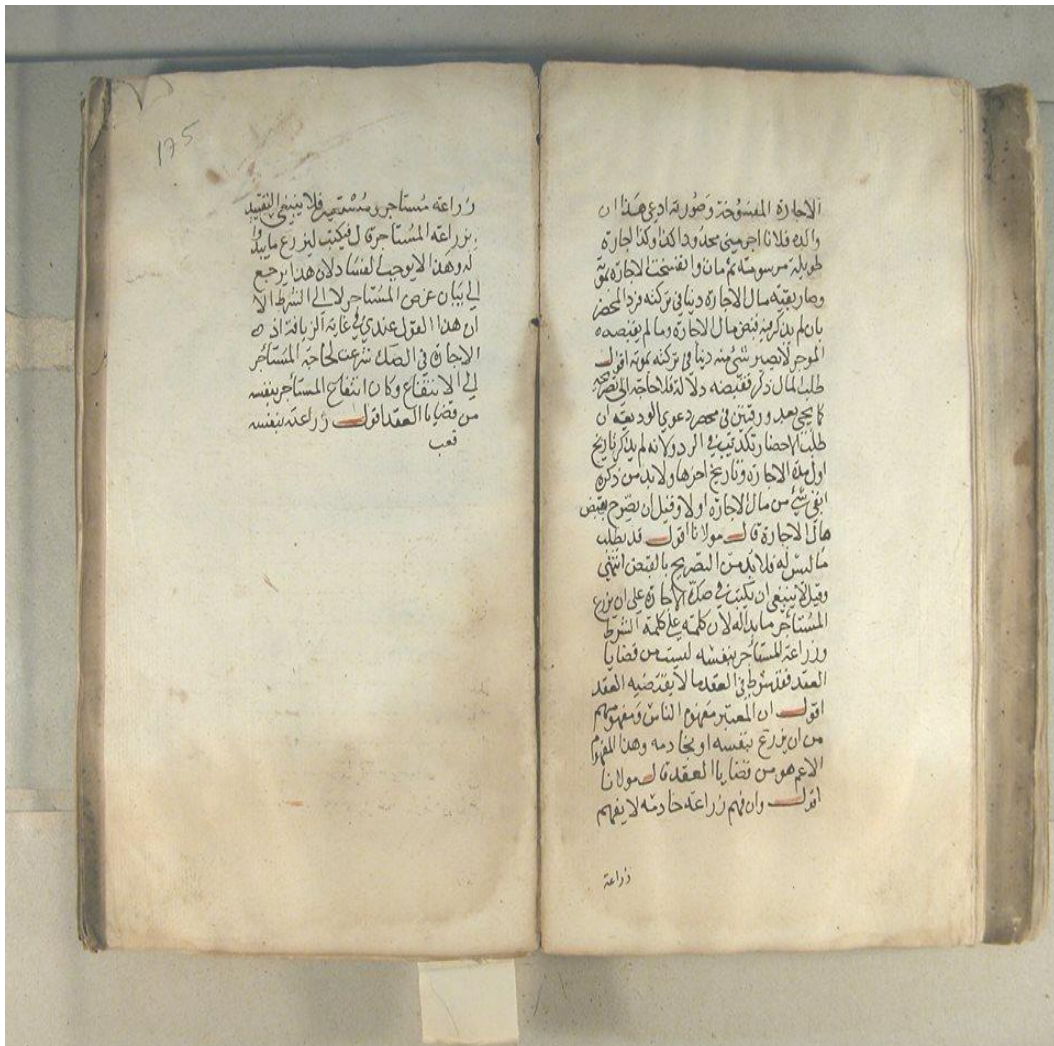 الاجارة المفسوخة وصورته ادعي هذا ان
والده فلانا اجر مني محدودا كذا وكذا اجارة
طويلة مرسومة ثم مات وانفسخت الاجارة بموته
وصار بقية مال الاجارة دينا في تركته فرد المحضر
بان لم يذكر فيه قبض مال الاجارة وما لم يقبضه
الموجر لا يصير شئ منه دينا في تركته بموته اقول
طلب المال ذكر فقبضه دلالة فلا حاجة الى تصريحه
كما يجي بعد ورقتين في محضر دعوي الوديعة ان
طلب الاحضار الرد ولانه لم يذكر تاريخ
اول مدة الاجارة وتاريخ اخرها ولابد من ذكره
ابقي شئ من مال الاجارة اولا وقيل ان يصرح بقبض
مال الاجارة قال مولانا اقول قد يطلب
ما ليس له فلابد من التصريح بالقبض انتهى
وقيل لا ينبغي ان يكتب في صك الاجارة على ان يزرع
المستأجر ما بدا له لان كلمة على كلمة الشرط
وزراعة المستأجر بنفسه ليست من قضايا
العقد فقد شرط في العقد ما لا يقتضيه العقد
اقول ان المعتبر مفهوم الناس ومفهومهم
من ان يزرع بنفسه او بخادمه وهذا المفهوم
الاعم هو من قضايا العقد قال مولانا
اقول وان فهم زراعة خادمه لا يفهم
زراعة
175
زراعة مستاجر فلا ينبغي التقييد
بزراعة المستاجر قال فيكتب ليزرع ما يبدوا
له وهذا لا يوجب الفساد لان هذا يرجع
الي بيان غرض المستاجر لا الي الشرط الا
ان هذا القول عندي في غاية الزيافة اذ
الاجارة في الصك شرعت لحاجة المستأجر
الي الانتفاع وكان انتفاع المستأجر بنفسه
من قضايا العقد اقول زراعته بنفسه